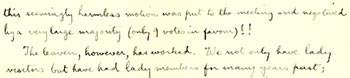 this seemingly harmless motion was put to the meeting and negatived
by a very large majority (only 9 votes in favour)!!
The leaven, however, has worked. We not only have lady
visitors but have had lady members for many years past;